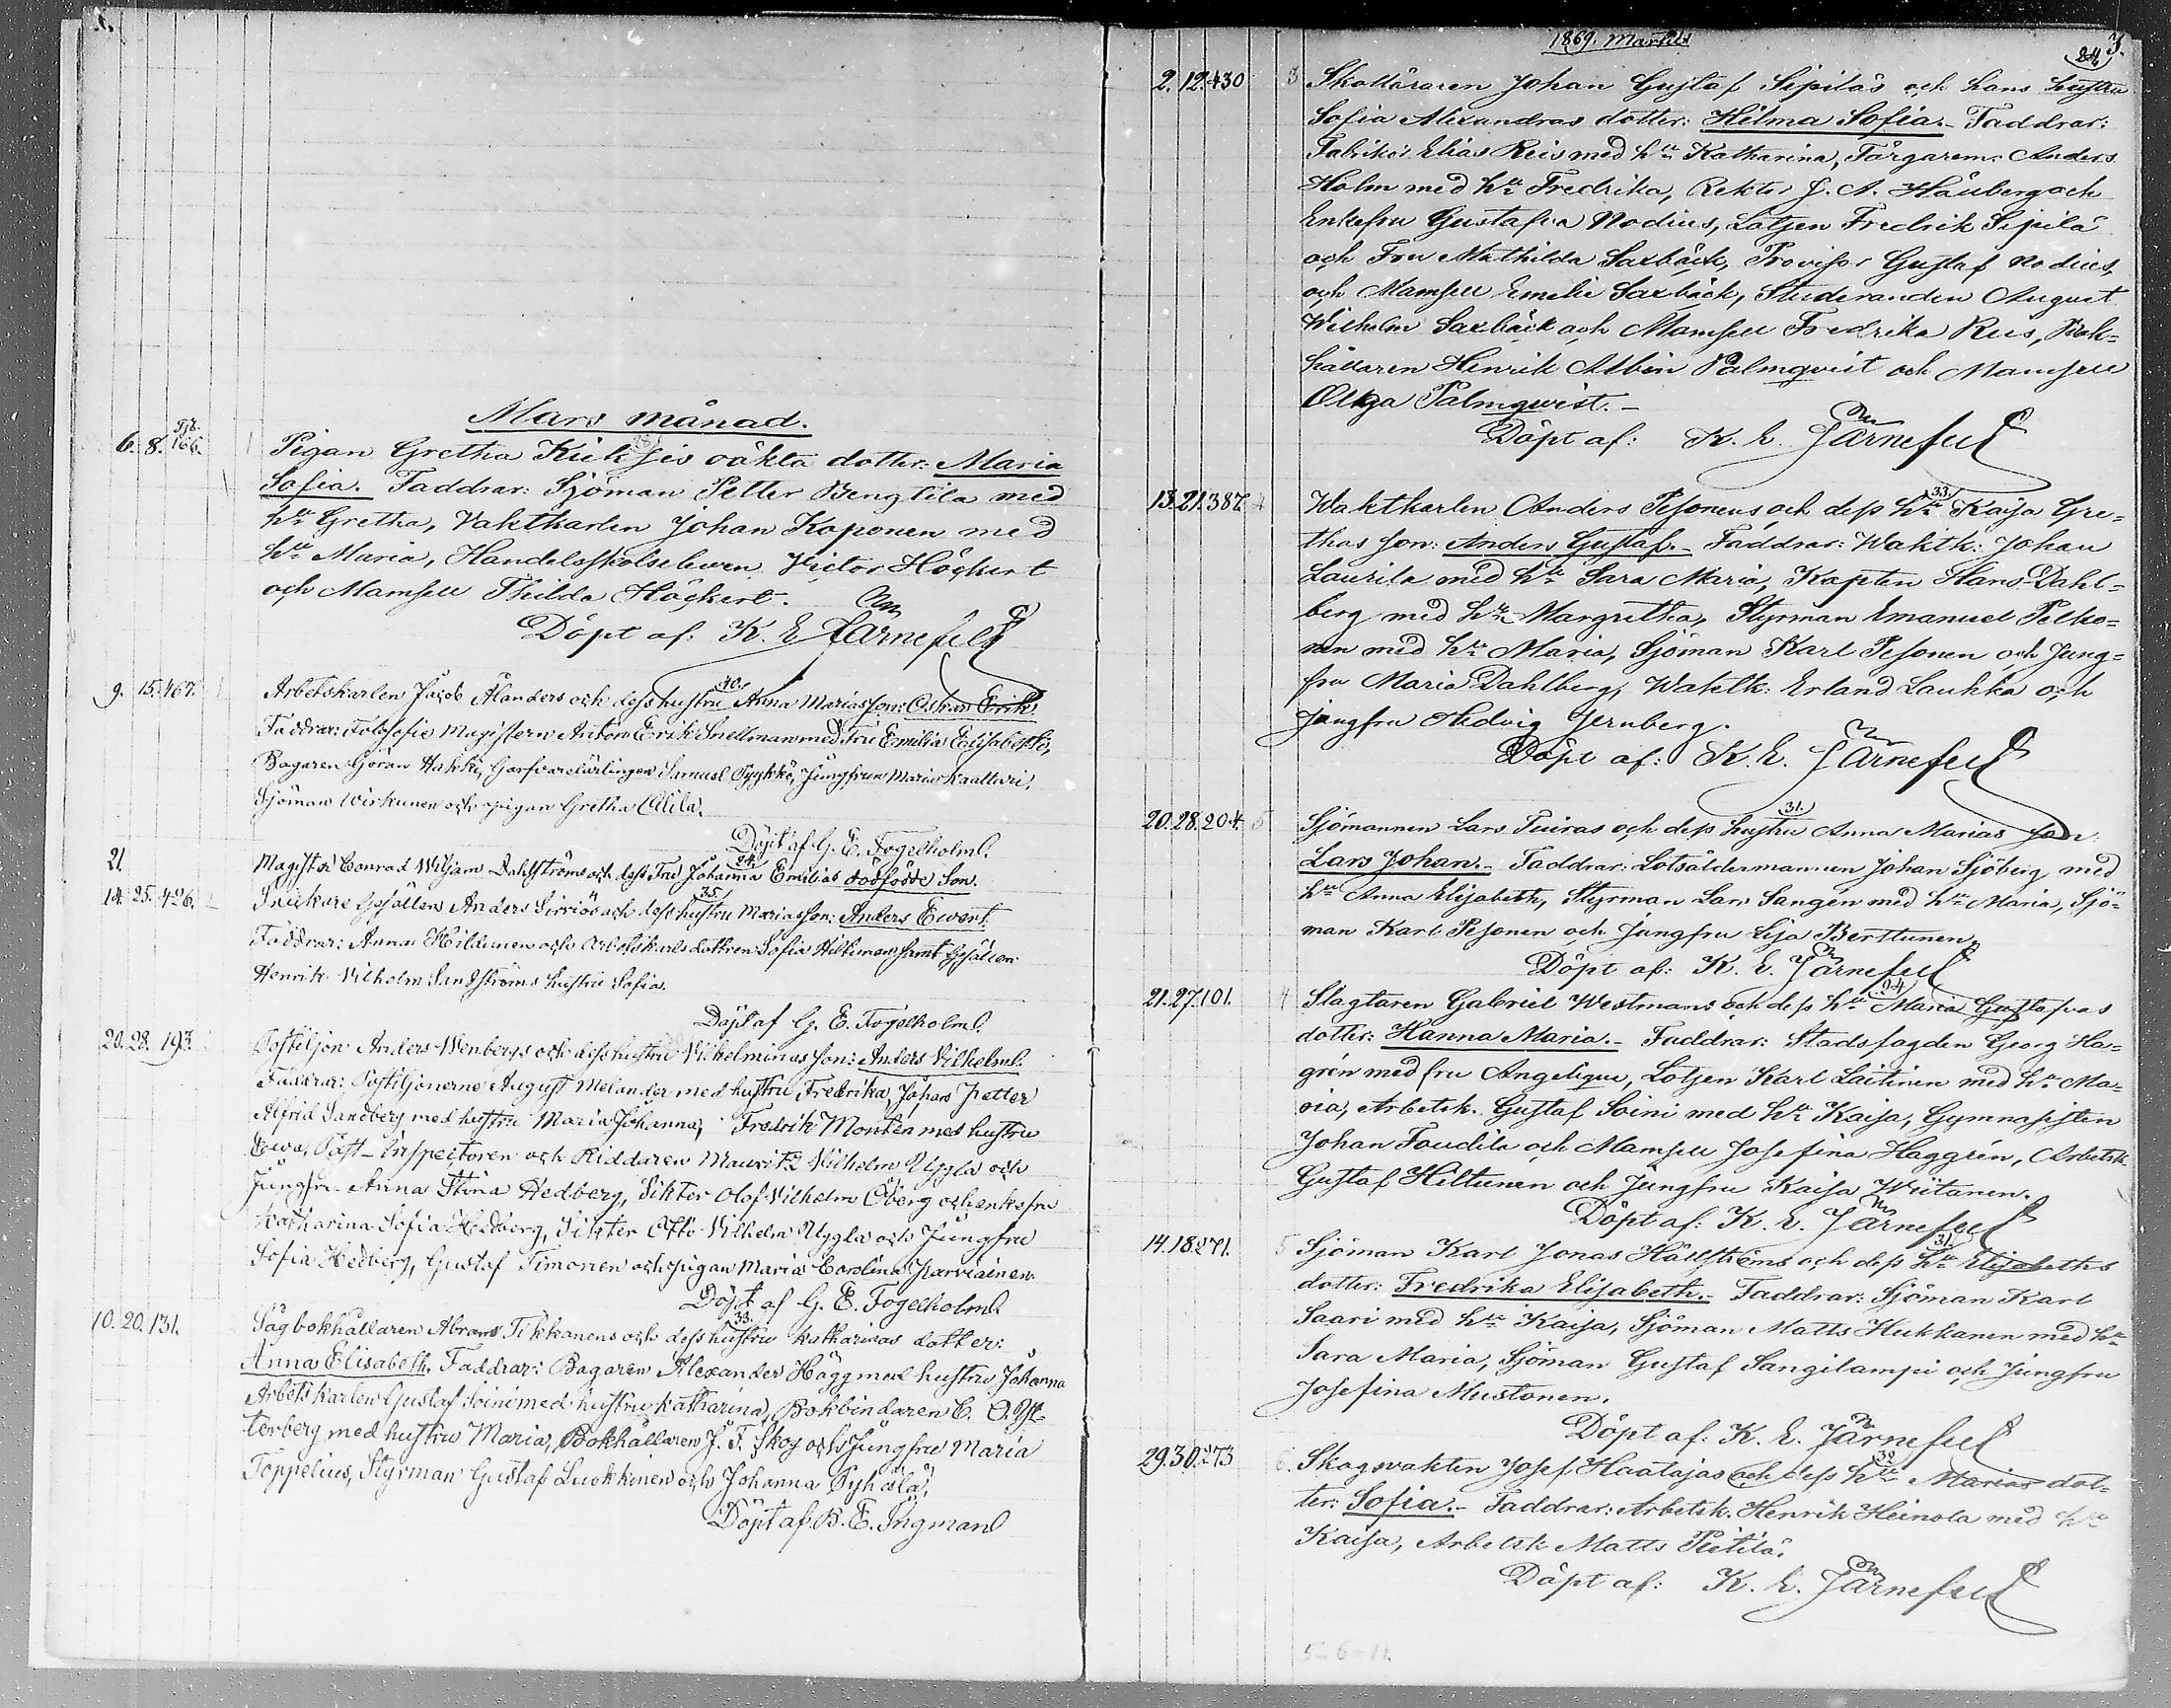 Mars månad.
6. 8. 166. 1 Pigan Gretha Kieksis oäkta dotter: Maria
Sofia. Faddrar: Sjöman Petter Bengtila med
hu Gretha, Vaktkarlen Johan Koponen med
hu Maria, Handelsskolseleven Victor Höckert
och Mamsell Thilda Höckert.
Döpt af: K. E. Järnefelt
9. 15. 467. 1 Arbetskarlen Jacob Ålanders och dess hustru Anna Marias son: Oskar Erik.
40.
Faddrar: Filosofie Magistern Anton Erik Snellman med Fru Emilia Elisabeth,
Bagaren Göran Hakki, Garfvarelärlingen Samuel Pyykkö, Jungfrun Maria Kaattari,
Sjöman Wirkunen och pigan Gretha Alila.
Döpt af G. E. Fogelholm.
21. Magister Conrad Viljam Dahlströms och dess Fru Johanna Emilias dödfödde Son.
24.
14. 25. 426. 2 Snickare Gesällen Anders Sirviös och dess hustru Marias son: Anders Evert.
35.
Faddrar: Anna Hildunen och Arbetskarls dottren Sofia Hiltunen samt Gesällen
Henrik Vilhelm Sandströms hustru Sofia.
Döpt af G. E. Fogelholm.
20. 28. 193. Postiljon Anders Wenbergs och dess hustru Vilhelminas son: Anders Vilhelm.
Faddrar: Postiljonerne August Melander med hustru Fredrika, Johan Petter
Alfrid Sandberg med hustru Maria Johanna, Fredrik Montén med hustru
Ewa, Post-Inspectoren och Riddaren Mauritz Vilhelm Uggla och
Jungfru Anna Stina Hedberg, Sikter Olof Vilhelm Öberg och enkefru
Katharina Sofia Hedberg, Sikter Otto Vilhelm Uggla och Jungfru
Sofia Hedberg, Gustaf Timonen och pigan Maria Carolina Parviainen.
Döpt af G. E. Fogelholm.
10. 20. 131. Sågbokhållaren Abram Tikkanens och dess hustru Katharinas dotter:
33.
Anna Elisabeth. Faddrar: Bagaren Alexander Hägg med hustru Johanna
Arbetskarlen Gustaf Soini med hustru Katharina, Bokbindaren C. O. Ys-
terberg med hustru Maria, Bokhållaren J. F. Skog och Jungfru Maria
Toppelius, Styrman Gustaf Luokkinen och Johanna Pyhälä.
Döpt af B. E. Ingman
1869. Martius
3.
24
2. 12. 430 3 Skolläraren Johan Gustaf Sipiläs och hans hustru
Sofia Alexandras dotter: Hilma Sofia.- Faddrar:
Fabrikör Elias Reis med hu Katharina, Färgaren Anders
Holm med hu Fredrika, Rektor J. A. Häuberg och
Enkefru Gustafva Nodius, Lotsen Fredrik Sipilä
och Fru Mathilda Saxbäck, Provisor Gustaf Nodius,
och Mamsell Emelie Saxbäck, Studeranden August
Wilhelm Saxbäck och Mamsell Fredrika Reis, Bok=
hållaren Henrik Albin Palmqvist och Mamsell
Olga Palmqwist.-
Döpt af: K. E. Järnefelt
13. 21. 387. 4 Waktkarlen Anders Pesonens och dess hu Kaisa Gre=
33.
thas son: Anders Gustaf.- Faddrar: Waktk: Johan
Laurila med hu Sara Maria, Kapten Hans Dahl=
berg med hu Margretha, Styrman Emanuel Pelko=
nen med hu Maria, Sjöman Karl Pesonen och Jung=
fru Maria Dahlberg, Waktk: Erland Laukka och
Jungfru Hedvig Jernberg.
Döpt af: K. E. Järnefelt
20. 28. 204. 5 Sjömannen Lars Tuiras och dess hustru Anna Marias son:
31.
Lars Johan.- Faddrar: Lotsåldermannen Johan Sjöberg med
hu Anna Elisabeth, Styrman Lars Sangen med hu Maria, Sjö=
man Karl Pesonen och Jungfru Lisa Berttunen.
Döpt af: K. E. Järnefelt
21. 27. 101. 4 Slagtaren Gabriel Westmans och dess hu Maria Gustafvas
24
dotter: Hanna Maria.- Faddrar: Stadsfogden Georg Ha=
grén med fru Angelique, Lotsen Karl Laitinen med hu Ma=
ria, Arbetsk. Gustaf Soini med hu Kaisa, Gymnasisten
Johan Foudila och Mamsell Josefina Haggrén, Arbetsk.
Gustaf Hiltunen och Jungfru Kaisa Wiitanen.
Döpt af: K. E. Järnefelt
14. 18. 271. 5 Sjöman Karl Jonas Hällströms och dess hu Elisabeths
31.
dotter: Fredrika Elisabeth.- Faddrar: Sjöman Karl
Saari med hu Kaisa, Sjöman Matts Hukkanen med hu
Sara Maria, Sjöman Gustaf Sangilampi och Jungfru
Josefina Mustonen.
Döpt af: K. E. Järnefelt
29. 30. 273 6. Skogvakten Josef Haatajas och dess hu Marias dot=
32
ter: Sofia.- Faddrar: Arbetsk. Henrik Heinola med hu
Kaisa, Arbetsk Matts Pietilä.
Döpt af: K. E. Järnefelt
5-6-11.